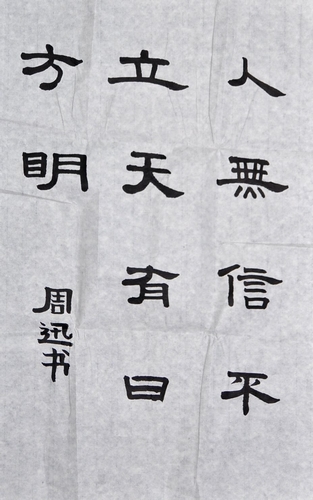 人無信不
立天有日
方明
周迅书